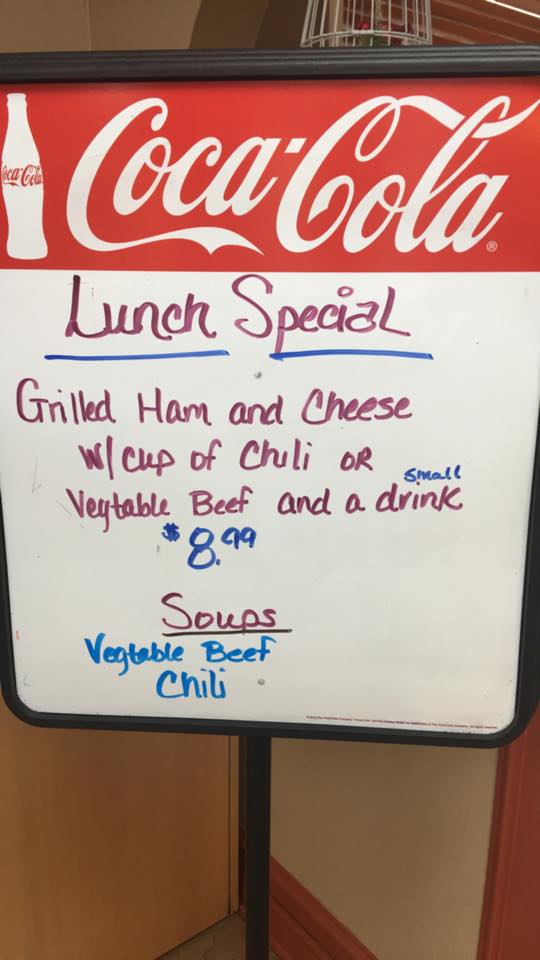 Coca-Cola
Coca-Cola®
Lunch Special
Grilled Ham and Cheese
w/ cup of Chili OR
small
Vegtable Beef and a drink
$8.99
Soups
Vegtable Beef
Chili